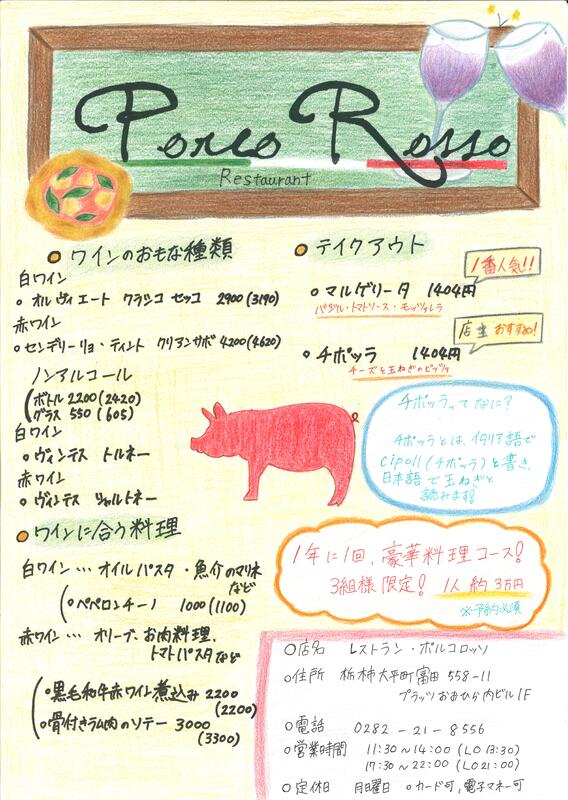 Porco Rosso
Restaurant
ワインのおもな種類
白ワイン
オルヴィエート クラシコ セッコ 2900(3190)
赤ワイン
センデリーリョ・ティント クリアンサボ 4200(4620)
ノンアルコール
ボトル 2200(2420)
グラス 550(605)
白ワイン
ヴィンテス トルネー
赤ワイン
ヴィンテス シャルトネー
ワインに合う料理
白ワイン…オイルパスタ・魚介のマリネ
など
ペペロンチーノ 1000(1100)
赤ワイン…オリーブ、お肉料理、
トマトパスタなど
黒毛和牛赤ワイン煮込み 2200
(2200)
骨付きラム肉のソテー 3000
(3300)
テイクアウト
1番人気!!
マルゲリータ 1404円
バジル・トマトソース・モッツァレラ
店主おすすめ!
チポッラ 1404円
チーズと玉ねぎのピッツァ
チポッラってなに?
チポッラとは、イタリア語で
cipoll(チポッラ)と書き、
日本語で玉ねぎと
読みます。
1年に1回、豪華料理コース!
3組様限定! 1人約3万円
※予約必須
店名 レストラン・ポルコロッソ
住所 栃木市大平町富田 558-11
プラッツおおひら内ビル1F
電話 0282-21-8556
営業時間 11:30~14:00(LO 13:30)
17:30~22:00(LO 21:00)
定休日 月曜日 カード可,電子マネー可